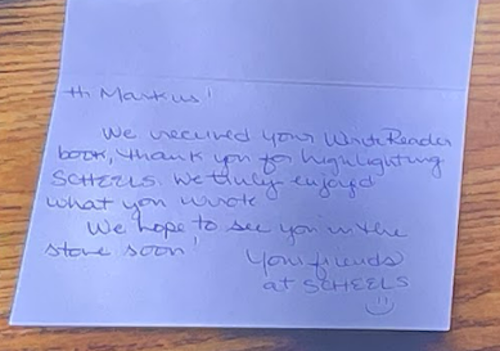 Hi Markus!
We received your Write Reader
book, thank you for highlighting
SCHEELS. We truly enjoyed
what you wrote
We hope to see you in the
store soon!
Your friends
at SCHEELS